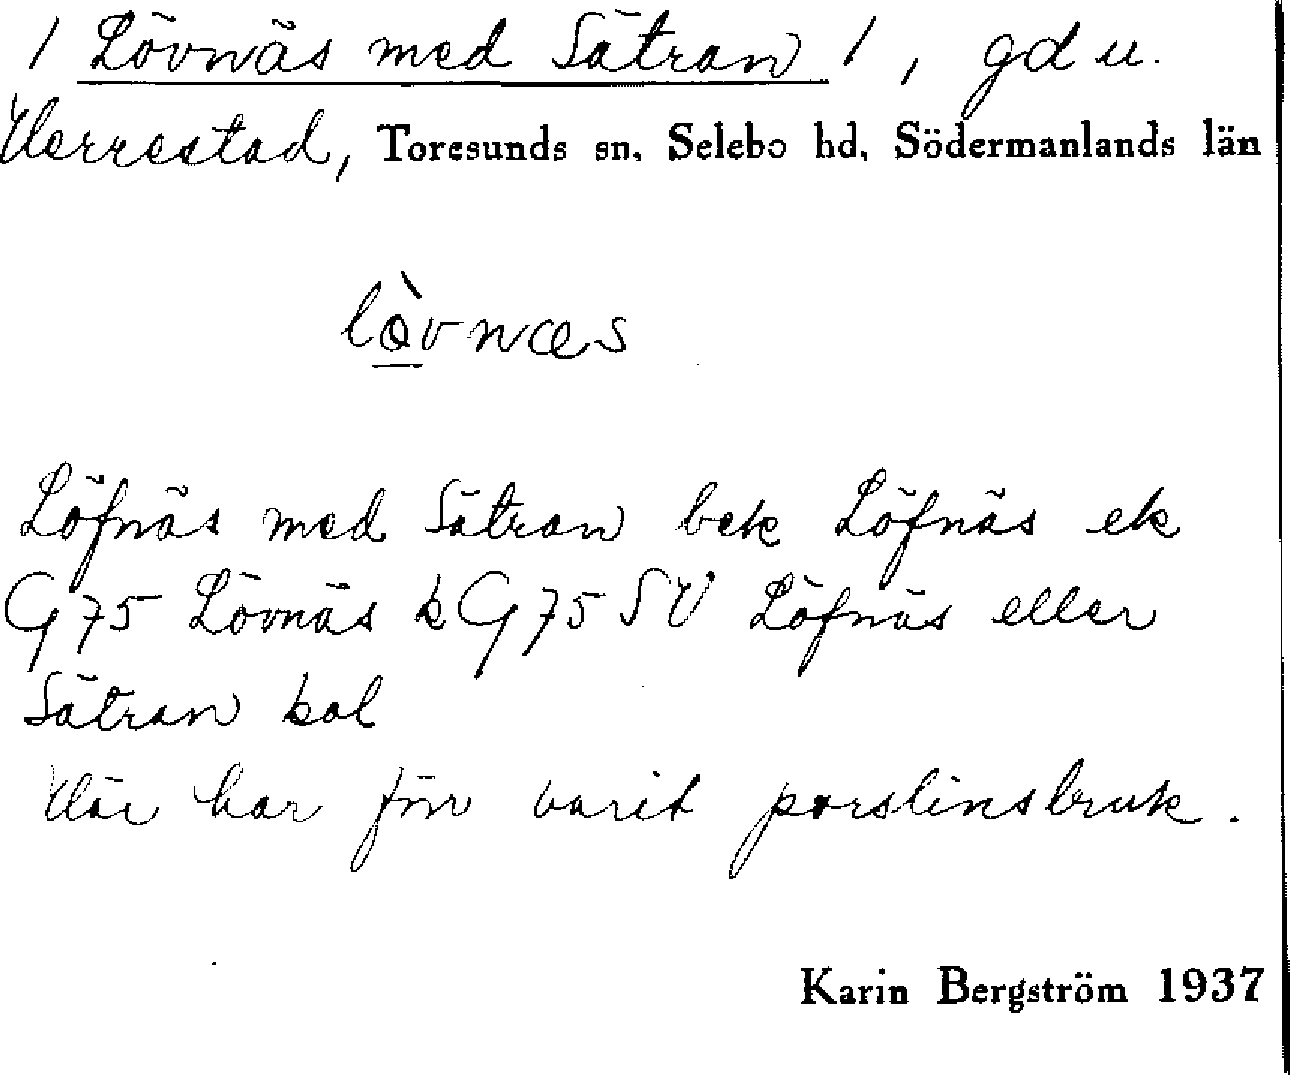 / Lövnäs med Sätran /, gd u.
Herrestad, Toresunds sn, Selebo hd, Södermanlands län
lò̱vnæs
Löfnäs med Sätran bek Löfnäs ek
G 75 Lövnäs k G 75 SV Löfnäs eller
Sätran kol
Här har förr varit porslinsbruk.
Karin Bergström 1937